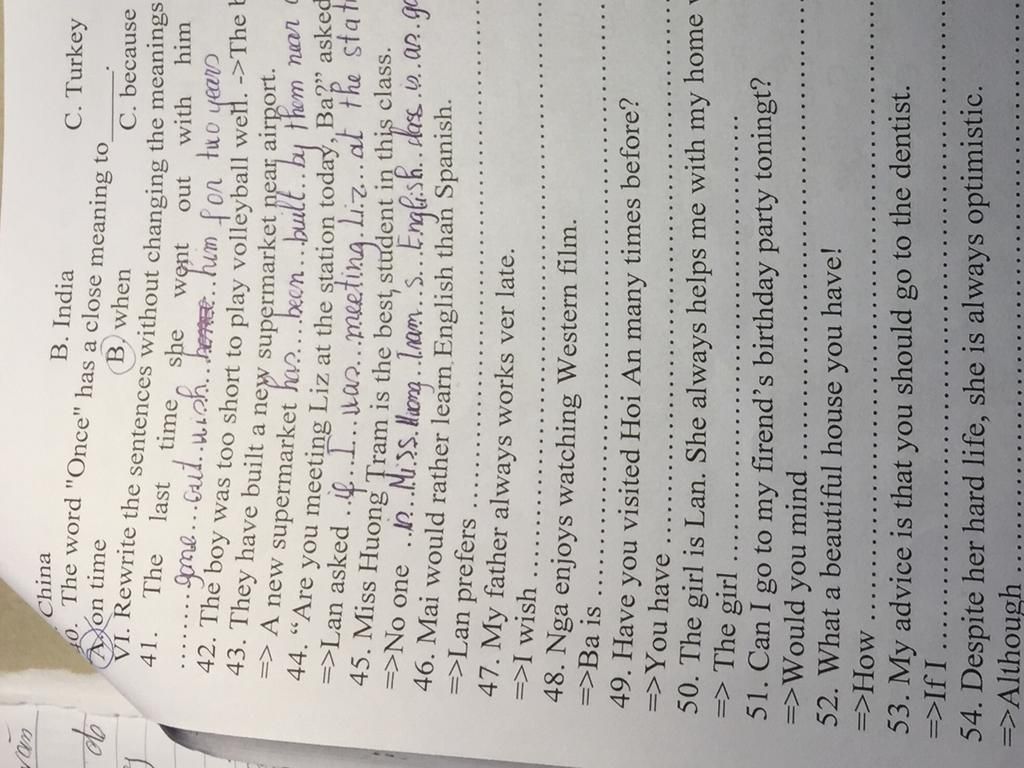 China B. India C. Turkey
40. The word "Once" has a close meaning to________.
A. on time B. when C. because
VI. Rewrite the sentences without changing the meanings
41. The last time she went out with him
........gone...out..with.......him for two years
42. The boy was too short to play volleyball well. ->The
43. They have built a new supermarket near airport.
=> A new supermarket has...been...built...by them near
44. "Are you meeting Liz at the station today, Ba?" asked
=>Lan asked ..if...I...was...meeting Liz...at the
45. Miss Huong Tram is the best student in this class.
=>No one ..in..Miss..Huong Tram..'s..English..class is as
46. Mai would rather learn English than Spanish.
=>Lan prefers ........................................
47. My father always works ver late.
=>I wish ........................................
48. Nga enjoys watching Western film.
=>Ba is ........................................
49. Have you visited Hoi An many times before?
=>You have ........................................
50. The girl is Lan. She always helps me with my home
=> The girl ........................................
51. Can I go to my firend's birthday party toningt?
=>Would you mind ........................................
52. What a beautiful house you have!
=>How ........................................
53. My advice is that you should go to the dentist.
=>If I ........................................
54. Despite her hard life, she is always optimistic.
=>Although ........................................